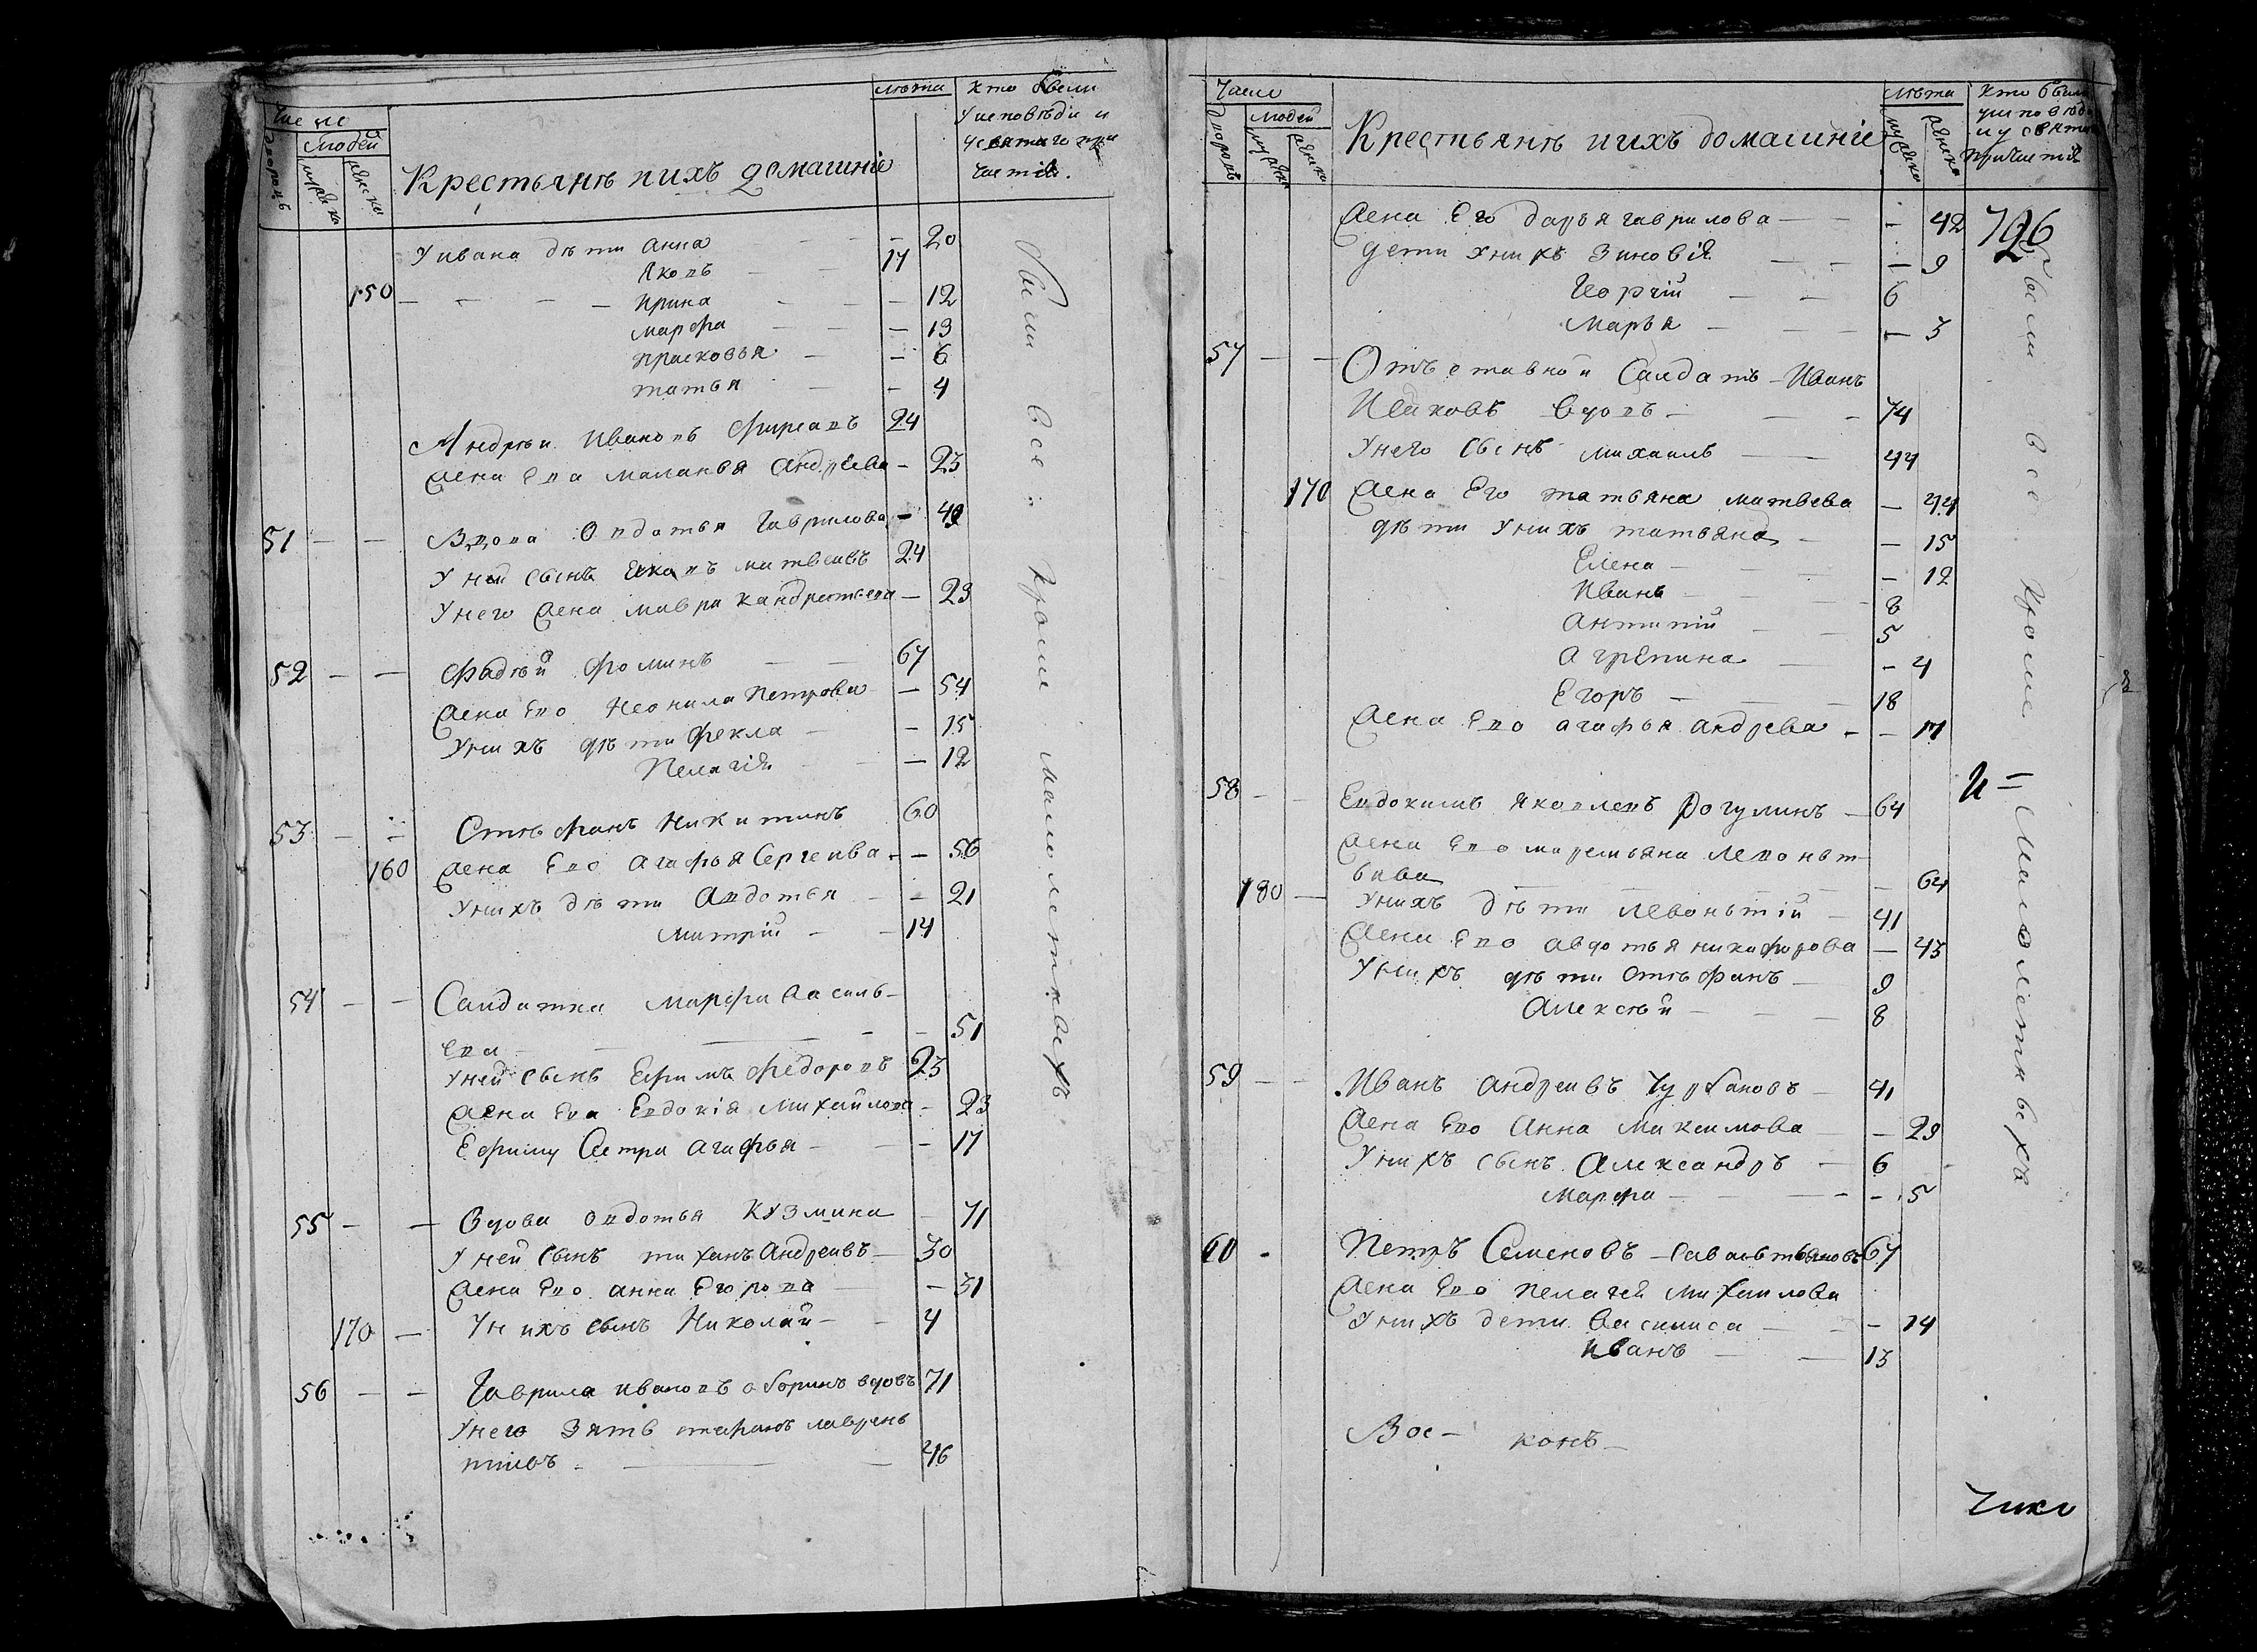 Число
Людей
дворовъ
мужеска
женска
Крестьянѣ ихъ домашніе
лѣта
Кто были
у исповѣди и
у святаго при
частія.
У ивана дѣти анна — — — 20
Яковъ — — 17
150 — — — — ирина — — — 12
марфа — — — 13
прасковья — — 6
татья — — 4
Андрѣи Ивановъ Фирсавъ 24
жена Ево маланья андреева — 23
51 — — Вдова Овдотья Гаврилова — 49
У ней сынъ Яковъ матвеивъ 24
У него жена мавра кандратьева — 23
52 — — Фадѣй Фоминъ — — 67
жена Ево Неонила Петрова — 54
У нихъ дѣти Фекла — — 15
Пелагія — — — 12
53 — — Стѣфанъ Никитинъ 60
160 жена Ево агафья Сергеива — — 56
У нихъ дѣти Авдотья — — 21
Митрій — — 14
54 — — Салдатка Марфа Василь-
ева — — — — 51
У ней сынъ Ефимъ Федоровъ 23
жена Ева Евдокія Михайлова — 23
Ефиму Сестра агафья — — 17
55 — — Вдова овдотья Кузмина — 71
У ней сынъ тиханъ Андреивъ — 30
жена Ево анна Егорова — — 31
170 — У нихъ сынъ Николай — — 4
56 — — Гаврила ивановъ вдовъ 71
У него Зять лаврень
тиивъ — — — 46
Были все кроме малолетныхъ
Число
Людей
дворовъ
мужеска
женска
Крестьянѣ ихъ домашніе
лѣта
мужеска
женска
Кто были
у исповѣди
и у святаго
причастія
жена Его дарья гаврилова — — — 42
796
дети у нихъ Зиновія — — — 9
Георгій — — 6
Марья — — — — 3
57 — — Отъставной Салдатъ — Иванъ
вдовъ — — — 74
У него сынъ михаилъ — — 44
170 жена Его татьяна матвева — 44
дѣти у нихъ татьяна — — 15
Елена — — — 12
Иванъ — — — 8
Антипій — — 5
Агрепина — — 4
Егоръ — — 18
жена Ево агафья андрева — — 17
58 — — Евдокимъ яковлевъ Рогулинъ — 64
жена Ево маремьяна Левоньт-
ьива — — — — 64
180 — У нихъ дѣти левоньтій — 41
жена Ево авдотья никифорова — 43
У нихъ дѣти Стѣфанъ — 9
Алексѣй — — — 8
59 — — Иванъ андреивъ Чурбановъ — 41
жена Ево Анна Максимова — — 29
У нихъ сынъ Александръ — 6
Марфа — — — — 5
60 — Петръ Семеновъ — Саваостьяновъ 67
жена Ево пелагея михаилова
У нихъ дети Василиса — — — 14
иванъ — — 13
Вос- конъ —
Были все кроме
И = малолетныхъ
Чика